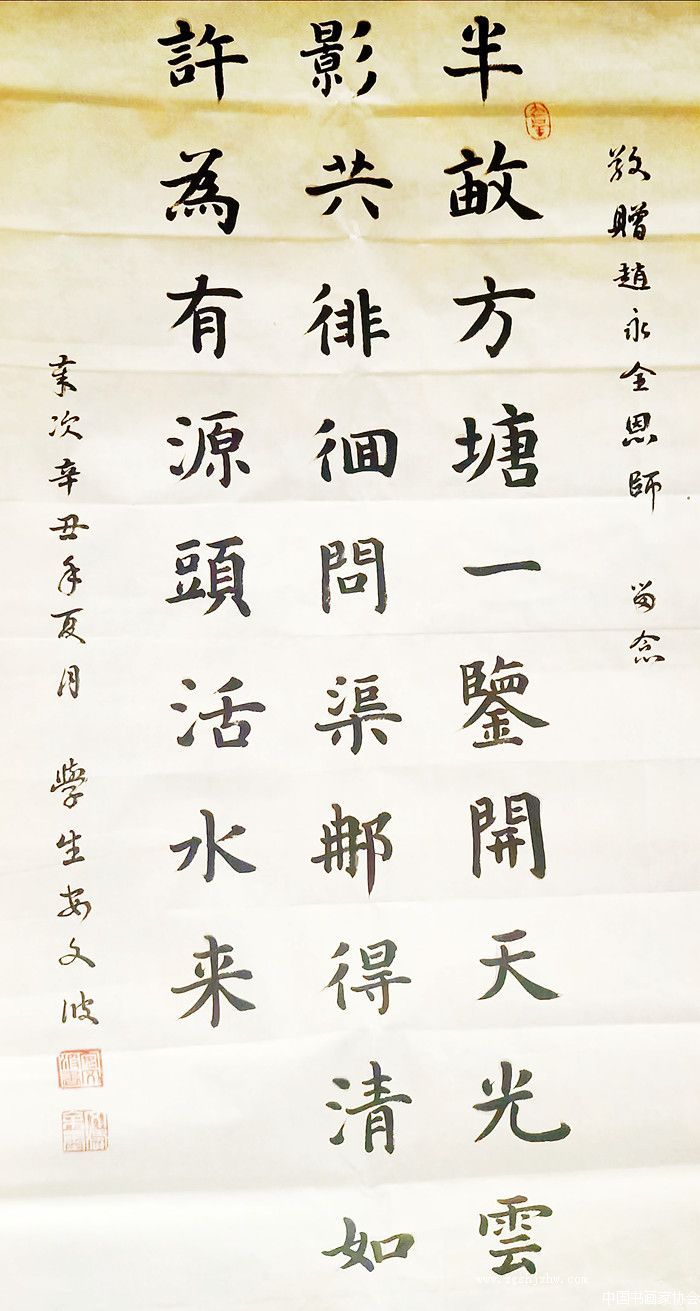 敬贈趙永全恩師 留念
半畝方塘一鑒開天光雲
影共徘徊問渠那得清如
許為有源頭活水来
歲次辛丑年夏月 學生安文波
中国书画家协会